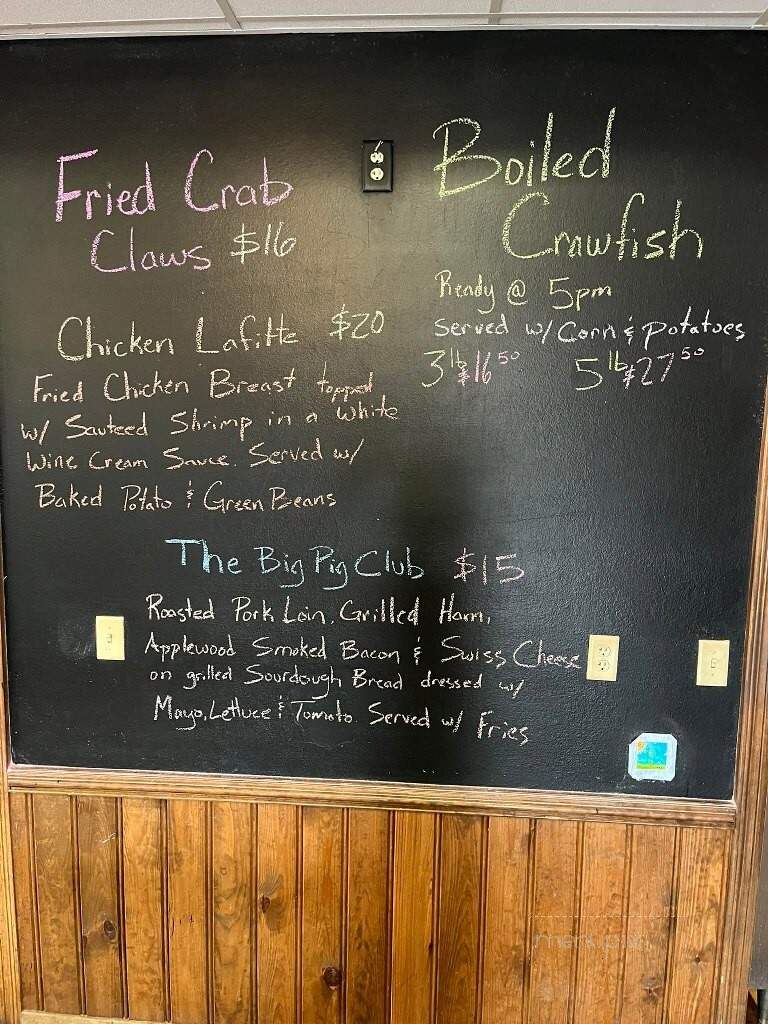 Fried Crab
Claws $16
Chicken Lafitte $20
Fried Chicken Breast topped
w/ Sauteed Shrimp in a white
Wine Cream Sauce. Served w/
Baked Potato & Green Beans
Boiled
Crawfish
Ready @ 5pm
Served w/ Corn & Potatoes
3 lb $16 50 5 lb $27 50
The Big Pig Club $15
Roasted Pork Loin, Grilled Ham,
Applewood Smoked Bacon & Swiss Cheese
on grilled Sourdough Bread dressed w/
Mayo, Lettuce & Tomato Served w/ Fries